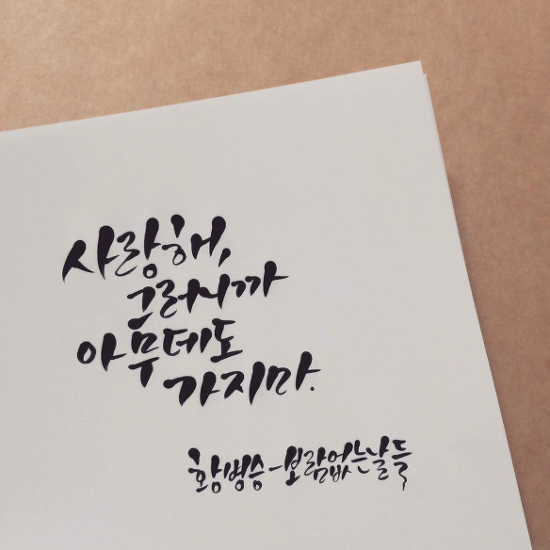 사랑해,
그러니까
아무데도
가지마.
황병승-보람없는날들